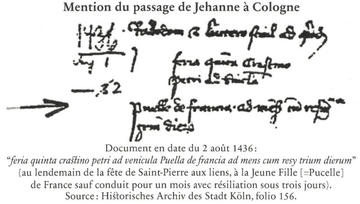 Mention du passage de Jehanne à Cologne
1436
feria quinta Crastino
petri ad vincula
32
puella de francia ad mens cum resy
trium dierum
Document en date du 2 août 1436 :
“feria quinta craſtino petri ad venicula Puella de francia ad mens cum resy trium dierum”
(au lendemain de la fête de Saint-Pierre aux liens, à la Jeune Fille [=Pucelle]
de France sauf conduit pour un mois avec résiliation sous trois jours).
Source : Historisches Archiv des Stadt Köln, folio 156.